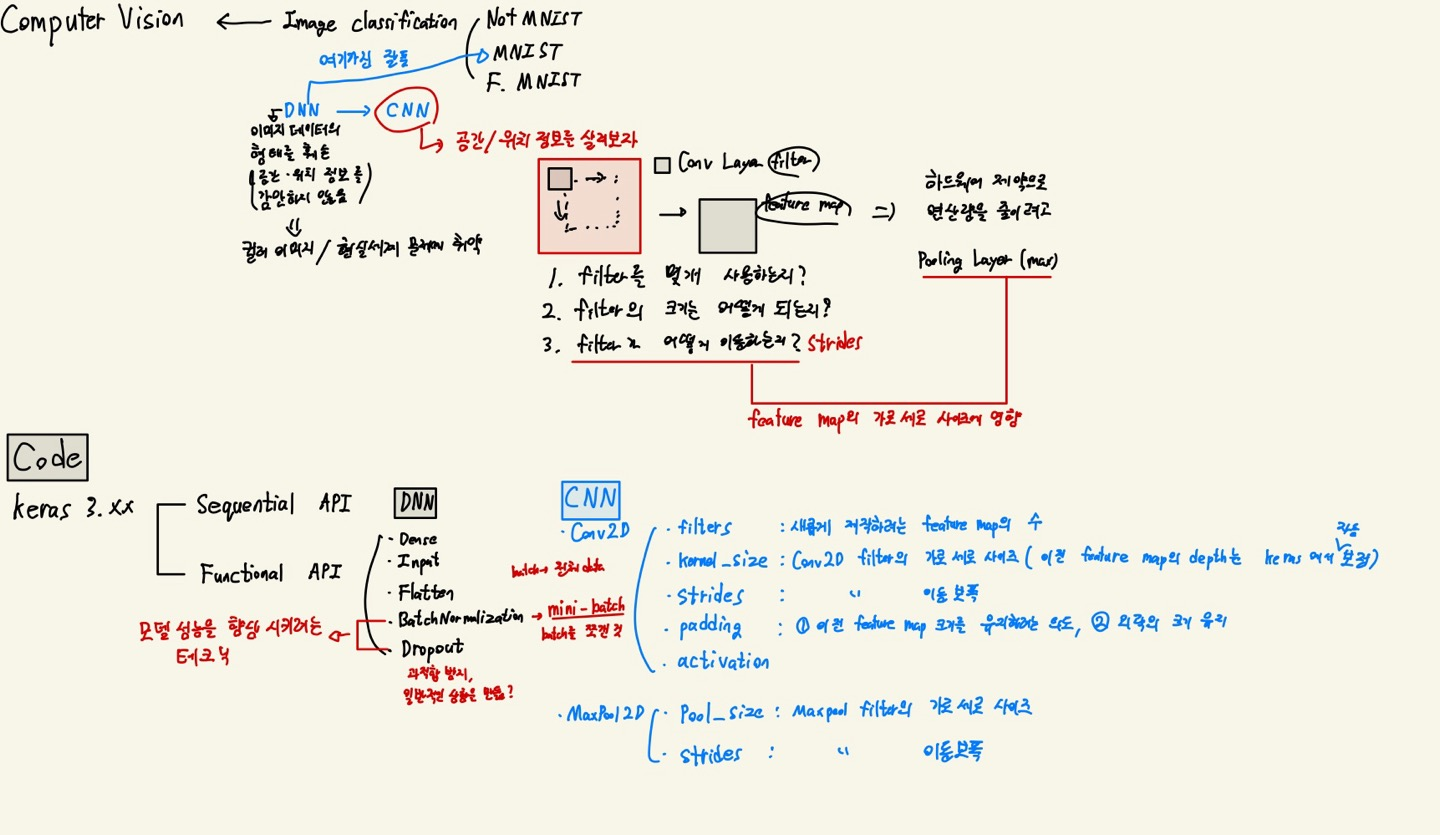 Computer Vision ← Image classification
Not MNIST
MNIST
F. MNIST
여기까진 잘됨
DNN → CNN
이미지 데이터의
형태를 훼손
(공간·위치 정보를
감안하지 않음)
⇓
컬러 이미지 / 현실세계 문제에 취약
공간/위치 정보를 살려보자
Conv Layer (filter)
feature map
⇒ 하드웨어 제약으로
연산량을 줄이려고
Pooling Layer (max)
1. filter를 몇개 사용하는지?
2. filter의 크기는 어떻게 되는지?
3. filter가 어떻게 이동하는지? Strides
feature map의 가로세로 사이즈에 영향
Code
keras 3.xx
Sequential API
Functional API
DNN
· Dense
· Input
· Flatten
· BatchNormalization → mini-batch
· Dropout
batch → 전체 data
batch를 쪼갠 것
모델 성능을 향상 시키려는
테크닉
과적합 방지,
일반적인 상황은 만듦?
CNN
· Conv2D
· filters : 새롭게 제작하려는 feature map의 수
· kernel_size : Conv2D filter의 가로세로 사이즈 (이전 feature map의 depth는 keras에서 자동 보정)
· strides : " 이동 보폭
· padding : ① 이전 feature map 크기를 유지하려는 의도, ② 외곽의 크기 유지
· activation
· MaxPool2D
· Pool_size : Maxpool filter의 가로세로 사이즈
· strides : " 이동보폭